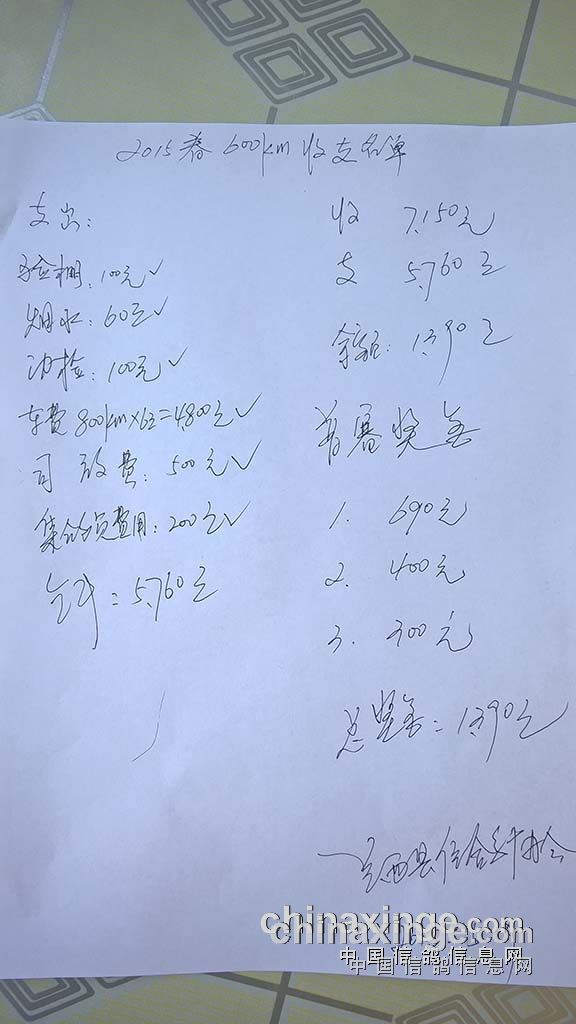 2015春600km收支名单
支出:
验棚:100元✓
烟水:60元✓
动检:100元✓
车费800km×6元=4,800元✓
司放费:500元✓
集鸽员费用:200元✓
合计=5,760元
收 7,150元
支 5,760元
余额:1,390元
首赛奖金
1. 690元
2. 400元
3. 300元
总奖金=1,390元
西县信鸽
chinaxinge.com
中国信鸽信息网